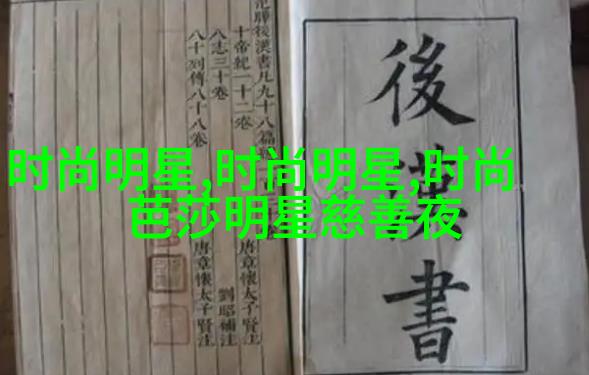 時尚明星,时尚明星,时尚
芭莎明星慈善夜
後漢書
范曄後漢書凡九十八篇
十帝紀一十二卷
八志三十卷
八十列傳八十八卷
唐章懷太子賢注
劉昭補注
唐章懷太子賢注